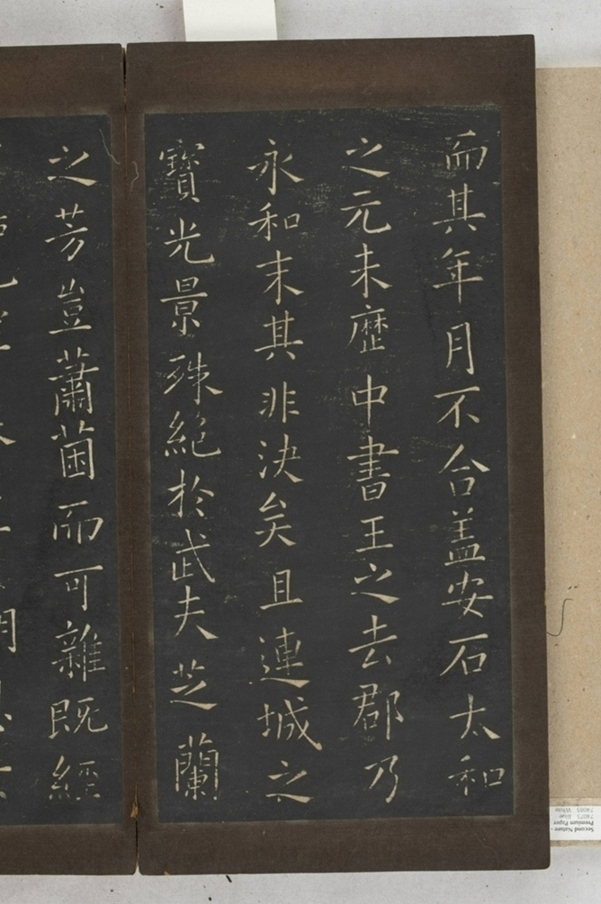 而其年月不合盖安石太和
之元未歷中書王之去郡乃
永和末其非決矣且連城之
寶光景殊絕於武夫芝蘭
之芳豈蕭茵而可雜既經
Second Nature -
Premium Paper